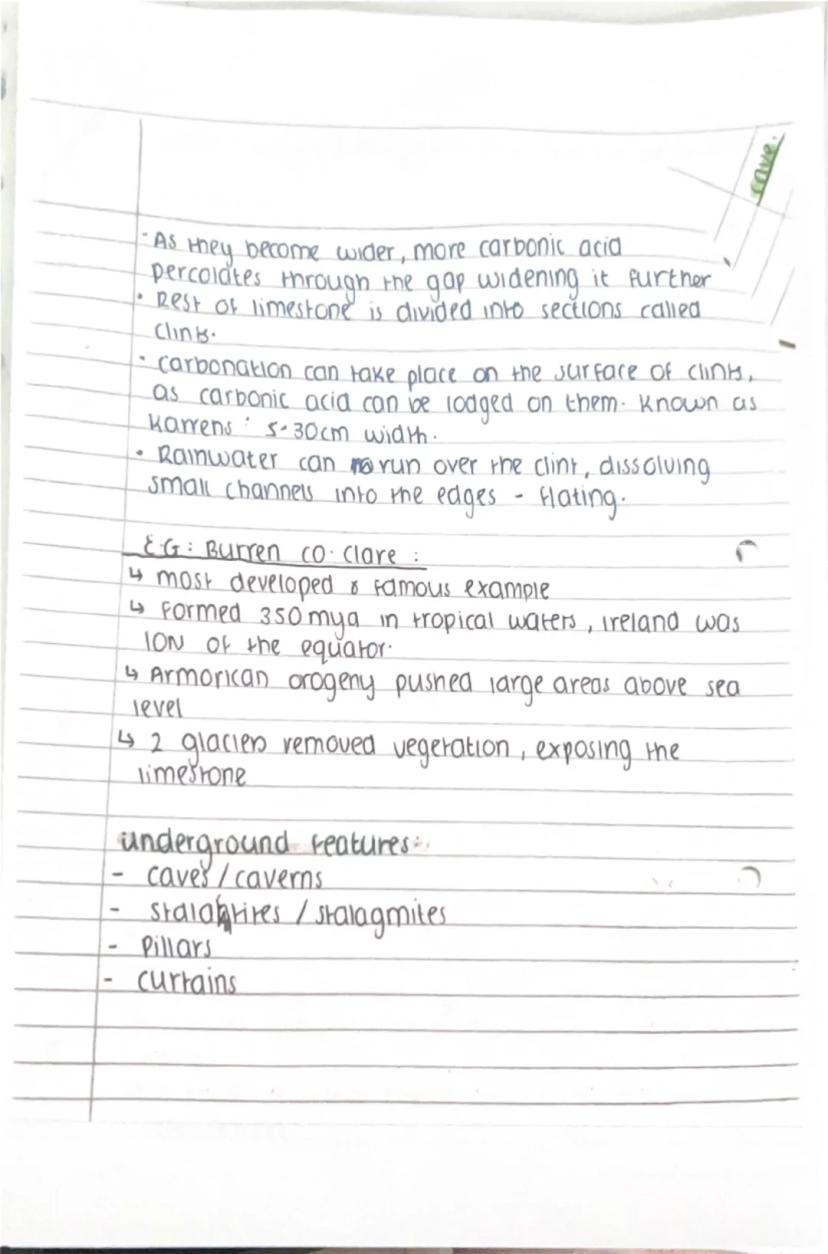 cave.
· As they become wider, more carbonic acid
percolates through the gap widening it further
· Rest of limestone is divided into sections called
clints.
· carbonation can take place on the surface of clints,
as carbonic acid can be lodged on them. Known as
Karrens : 5-30cm width.
· Rainwater can run over the clint, dissolving
small channels into the edges - flating.
E.G: Burren co. clare :
↳ most developed & famous example
↳ formed 350mya in tropical waters, ireland was
10N of the equator.
↳ Armorican orogeny pushed large areas above sea
level
↳ 2 glaciers removed vegetation, exposing the
limestone
underground features:
- caves / caverns
- stalaktites / stalagmites
- Pillars
- curtains